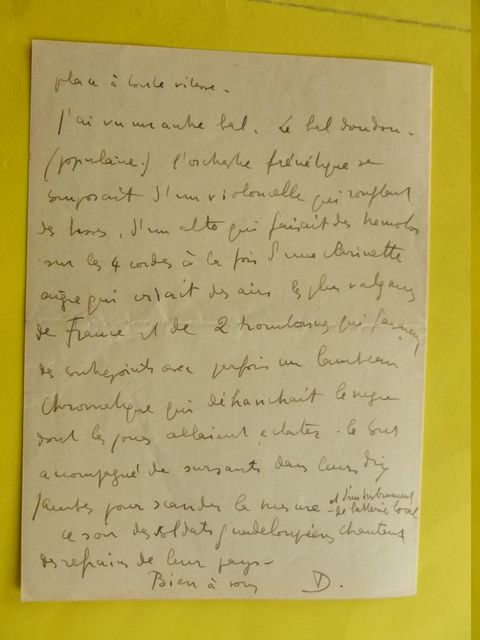 place à toute vitesse.
J'ai vu un autre bal. Le bal doudou.
(populaire) l'orchestre frénétique se
composait d'un violoncelle qui ronflait
des basses, d'un alto qui faisait des tremolos
sur les 4 cordes à la fois d'une clarinette
aigre qui criait des airs les plus vulgaires
de France et de 2 trombones qui faisaient
des contrepoints avec parfois un
chromatique qui déhanchait le negre
dont les joues allaient éclater. le tout
accompagné de suivants dans leurs
jambes pour scander la mesure et d'un instrument
de batterie local
ce soir des soldats guadeloupéens chantent
des refrains de leur pays.
Bien à vous D.